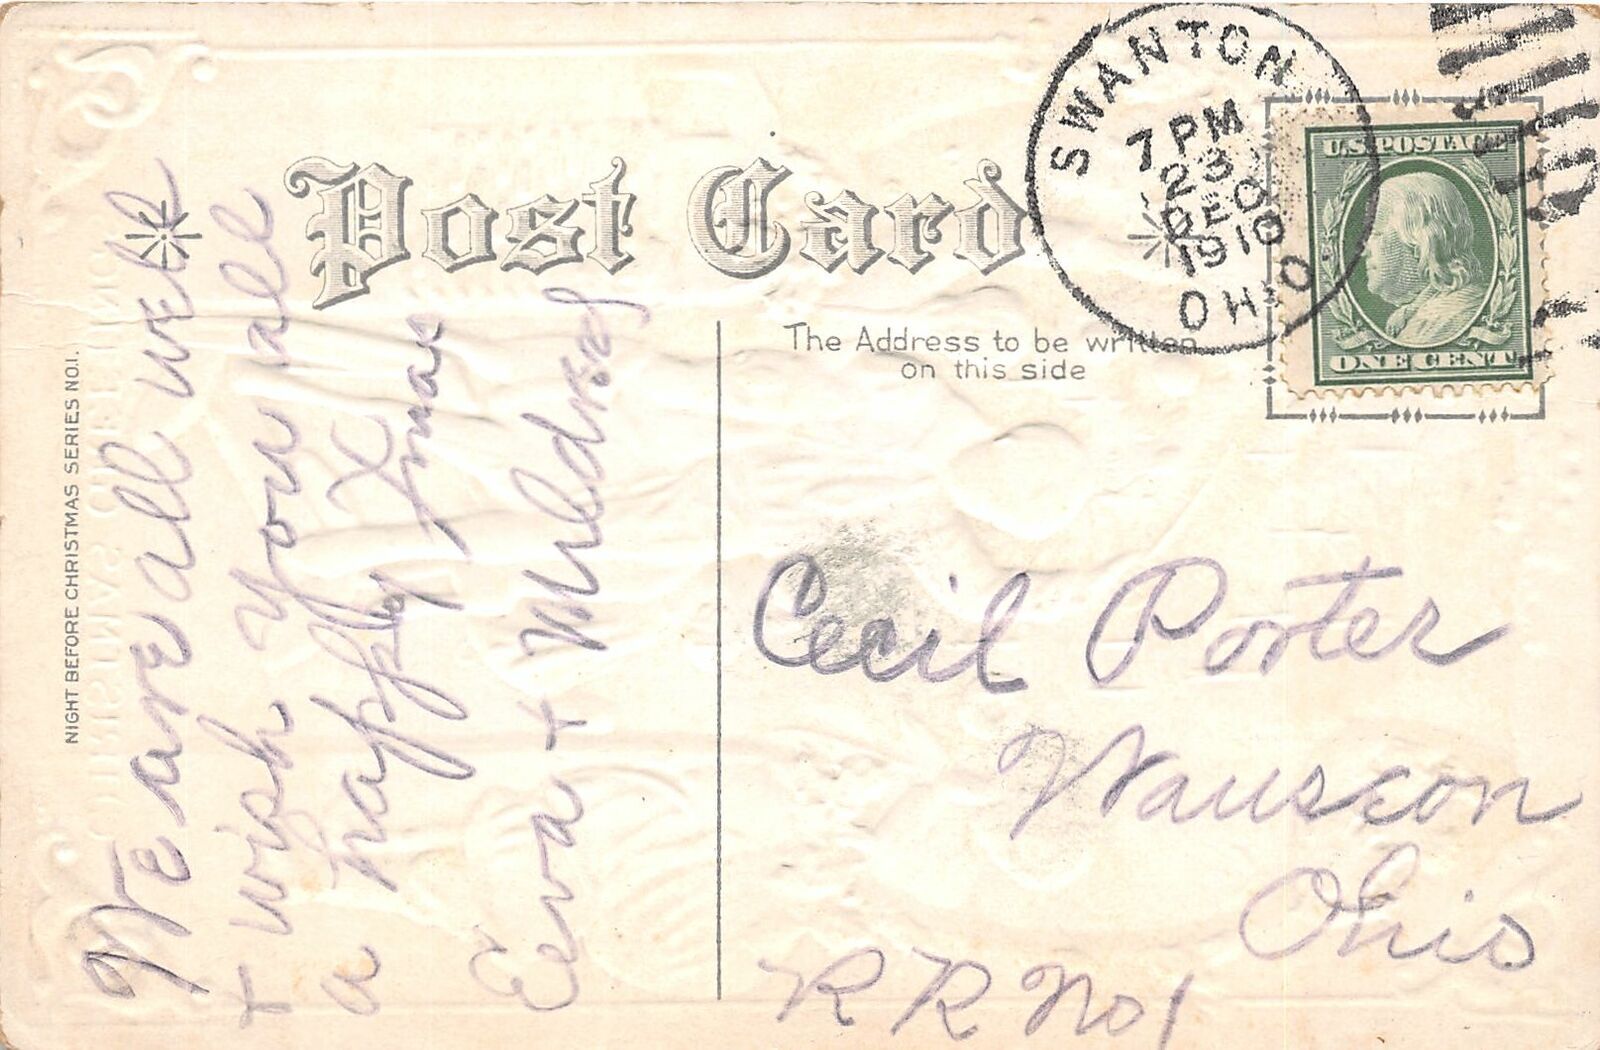 Post Card
SWANTON
7 PM
23
DEC
1910
OHIO
U.S. POSTAGE
ONE CENT
The Address to be written
on this side
NIGHT BEFORE CHRISTMAS SERIES NO.1.
We are all well
+ wish you all
a happy Xmas
Eva + Mildred
Cecil Porter
Wauseon
Ohio
R R No 1